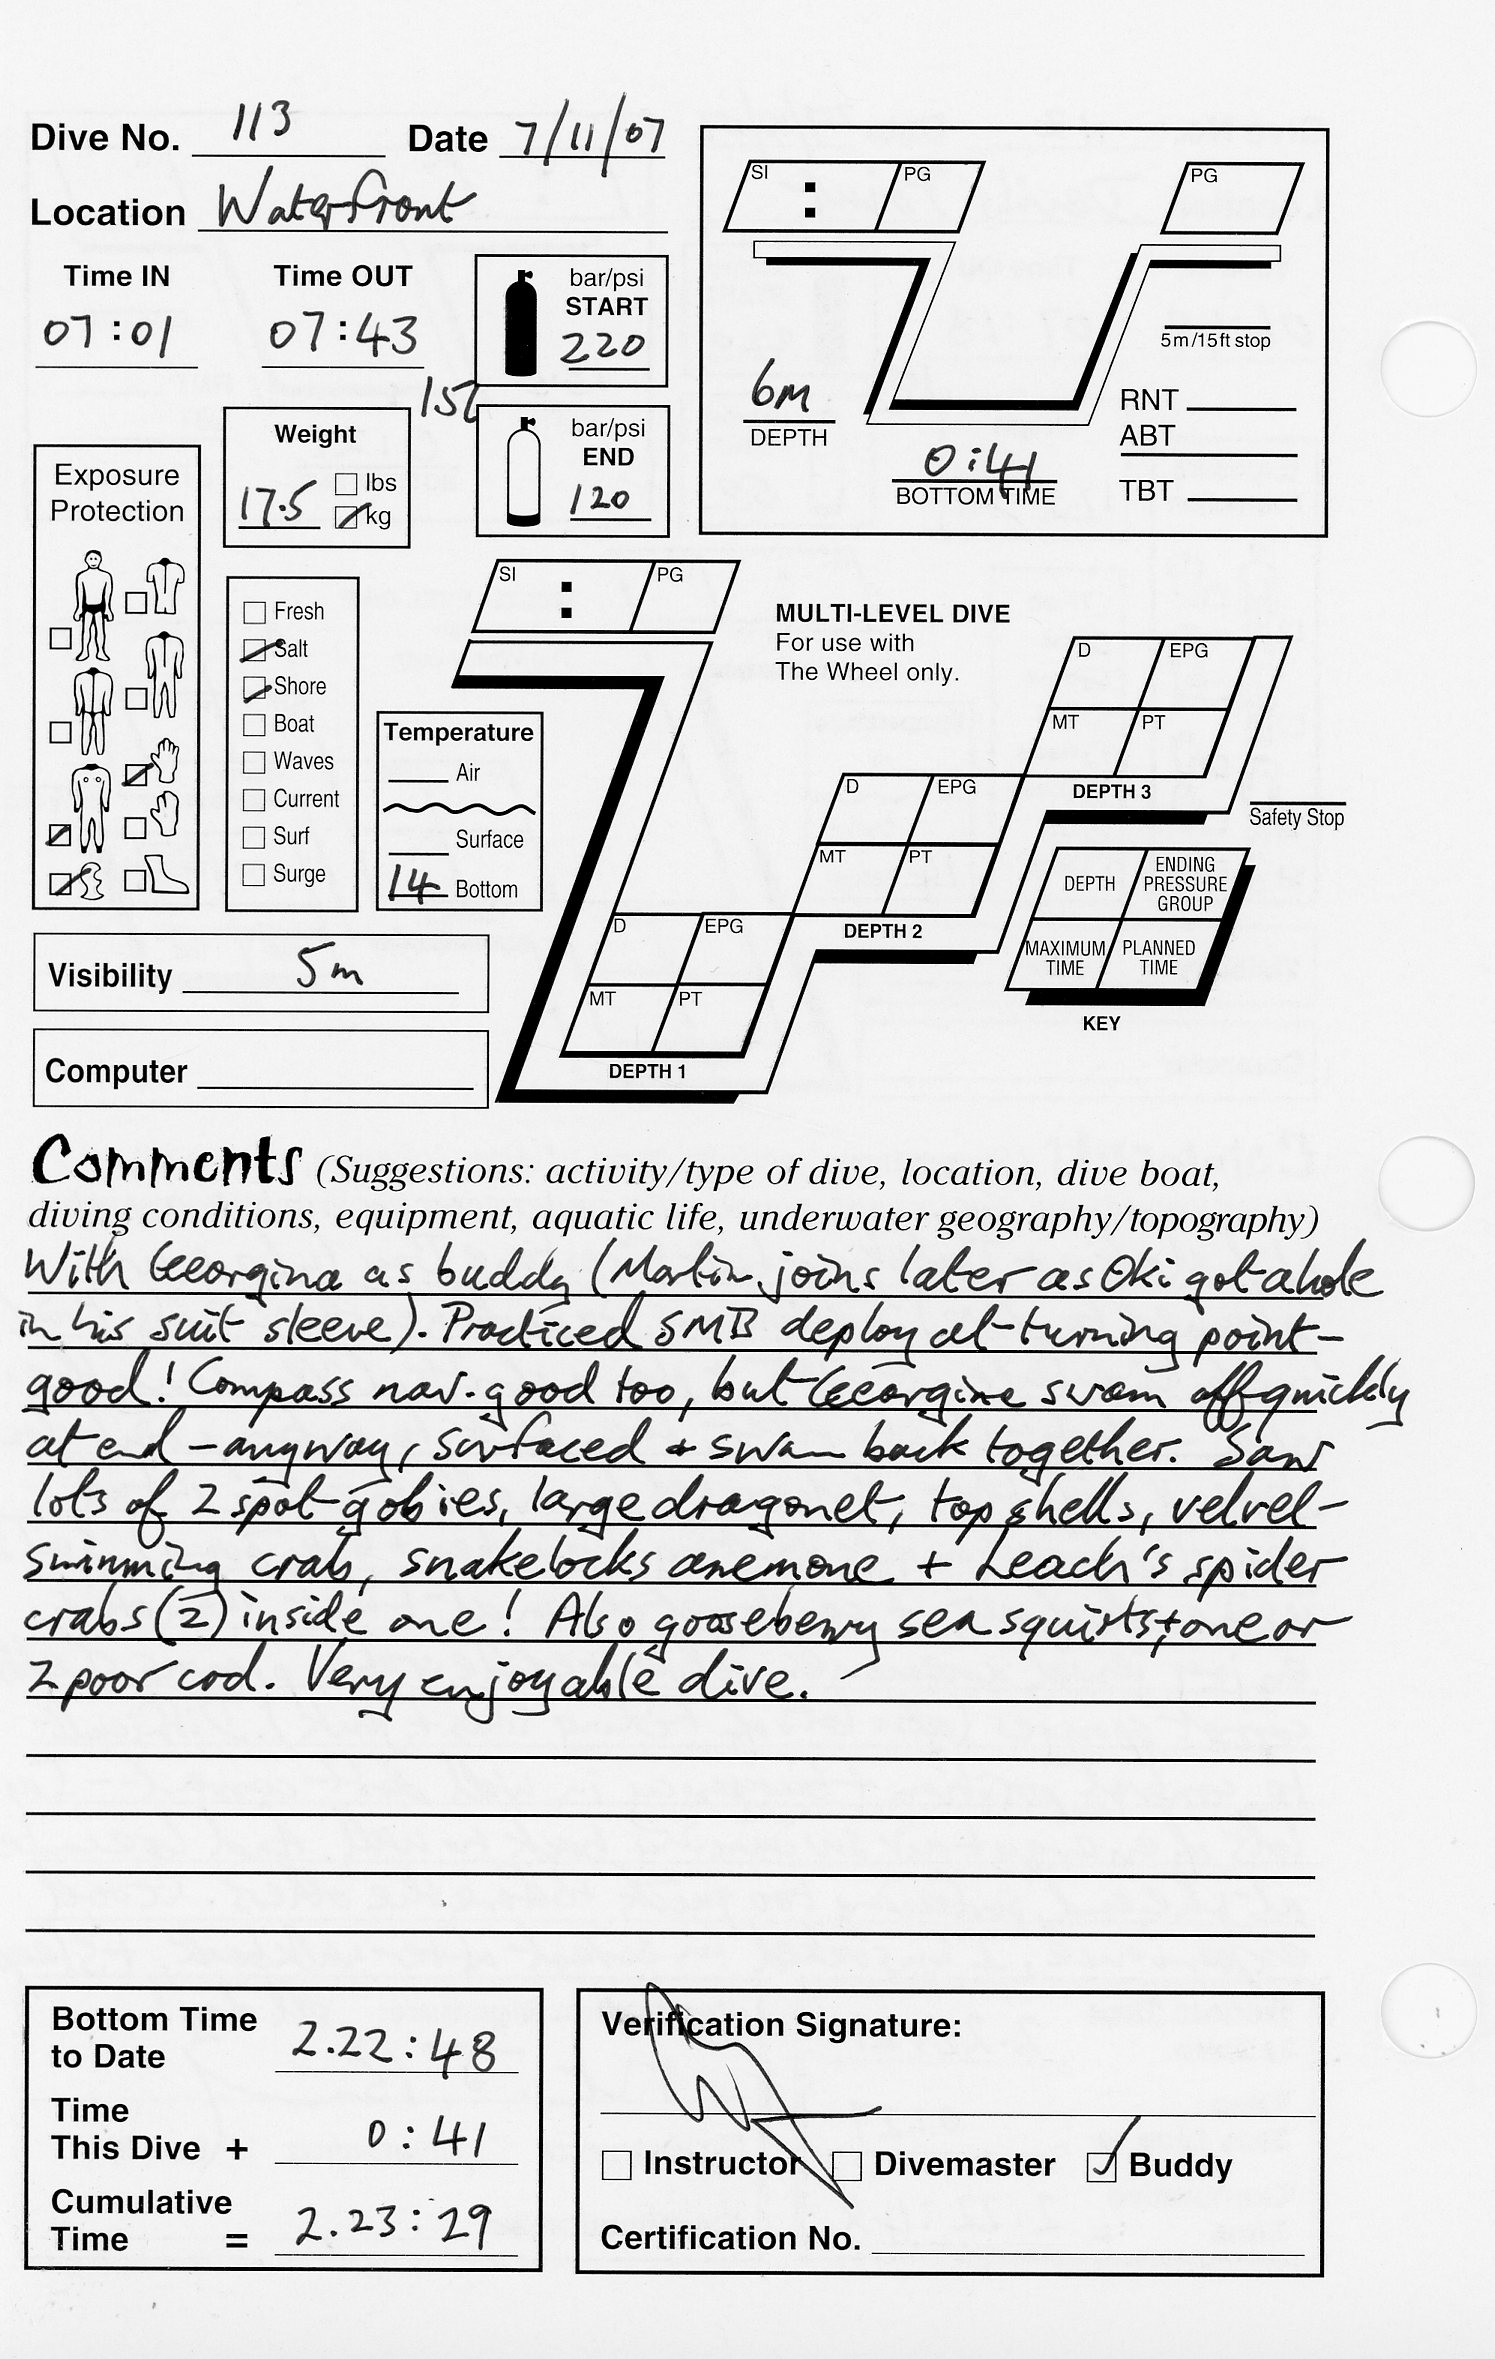 Dive No. 113 Date 7/11/07
Location Waterfront
Time IN 07:01
Time OUT 07:43
15l
bar/psi START 220
bar/psi END 120
Weight 17.5 lbs kg
Exposure Protection
Fresh
Salt
Shore
Boat
Waves
Current
Surf
Surge
Temperature
Air
Surface
14 Bottom
Visibility 5m
Computer
SI : PG
PG
5m/15ft stop
6m DEPTH
0:41 BOTTOM TIME
RNT
ABT
TBT
SI : PG
MULTI-LEVEL DIVE
For use with
The Wheel only.
D EPG
MT PT
DEPTH 3
Safety Stop
D EPG
MT PT
DEPTH 2
D EPG
MT PT
DEPTH 1
DEPTH ENDING PRESSURE GROUP
MAXIMUM TIME PLANNED TIME
KEY
Comments (Suggestions: activity/type of dive, location, dive boat,
diving conditions, equipment, aquatic life, underwater geography/topography)
With Georgina as buddy (Martin joins later as Oki got a hole
in his suit sleeve). Practiced SMB deploy at turning point -
good! Compass nav. good too, but Georgina swam off quickly
at end - anyway, surfaced + swam back together. Saw
lots of 2 spot gobies, large dragonet, top shells, velvet
swimming crab, snakelocks anemone + Leach's spider
crabs (2) inside one! Also gooseberry sea squirts, + one or
2 poor cod. Very enjoyable dive.
Bottom Time to Date 2.22:48
Time This Dive + 0:41
Cumulative Time = 2.23:29
Verification Signature:
Instructor Divemaster Buddy
Certification No.